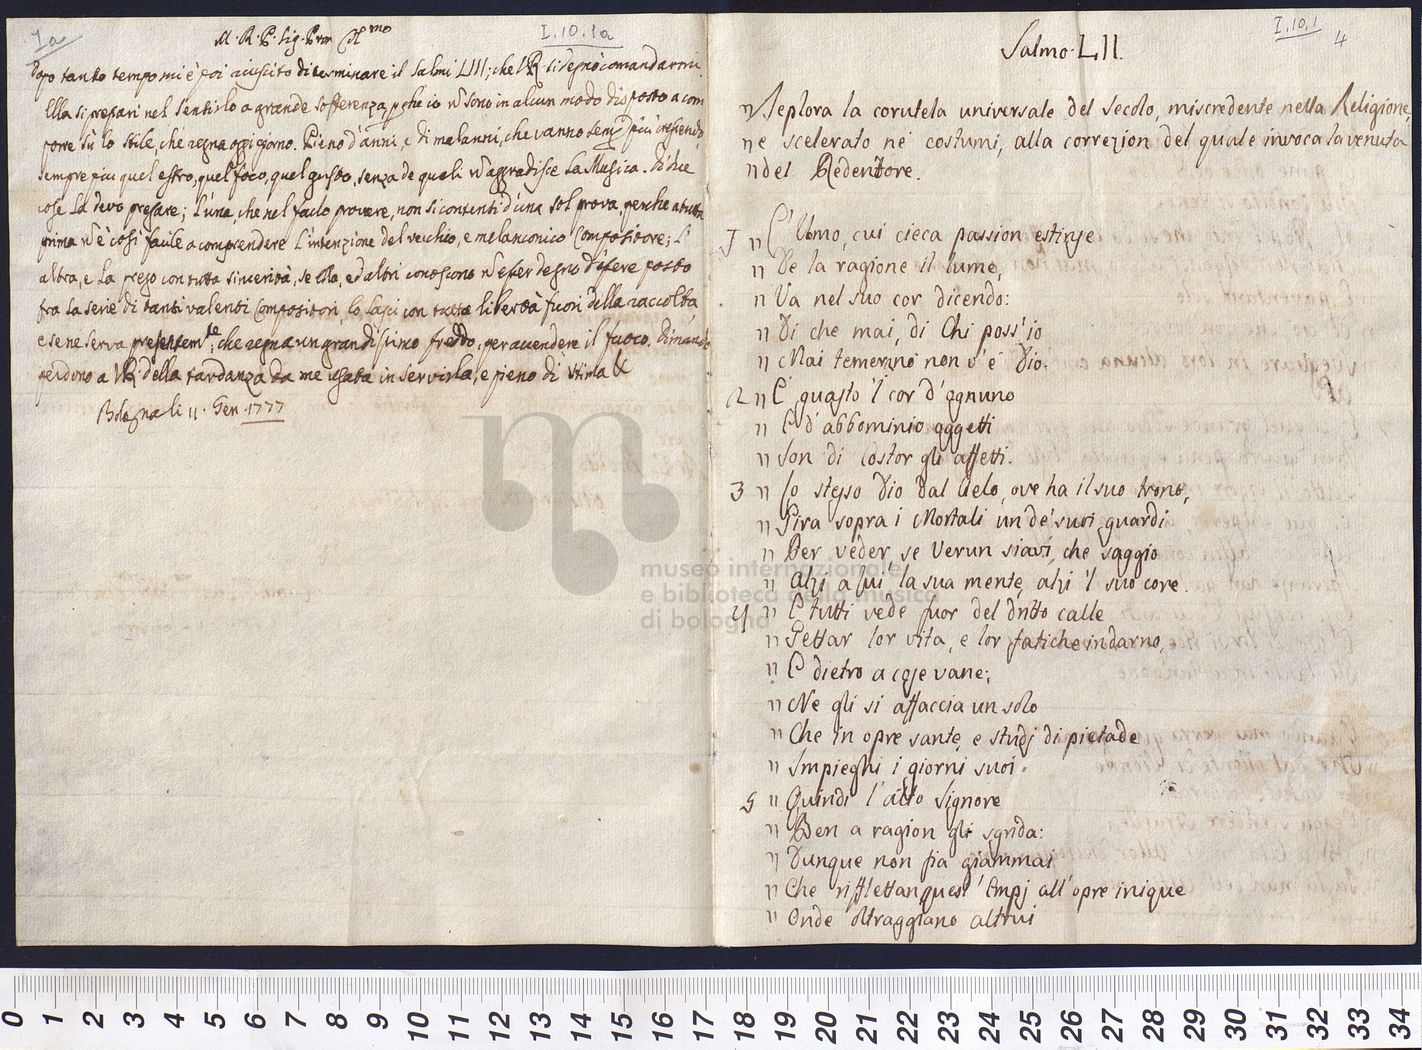 1a
I.10.1a
M. R. P. Sig. Prōn Col.mo
Dopo tanto tempo mi è poi riuscito di terminare il Salmo LIII; che V. R. si degnò comandarmi.
Ella si prepari nel sentirlo a grande sofferenza, perche io nō sono in alcun modo disposto a com
porre sù lo stile, che regna oggi giorno. Pieno d'anni, e di malanni, che vanno sempre più crescendo,
sempre più quel estro, quel foco, quel gusto, senza de quali nō aggradisce La Musica. Di due
cose La devo pregare; L'una, che nel farlo provare, non si contenti d'una sol prova, perche a tutta
prima nō è così facile a comprendere L'intenzione del vecchio, e melanconico Compositore; L'
altra, e La prego con tutta sincerità, se Ella, ed altri conoscono nō esser degno d'essere posto
fra La serie di tanti valenti Compositori, Lo Lasci con tutta libertà fuori della raccolta,
e se ne serva presentem.te, che regna un grandissimo freddo, per accendere il fuoco. Dimando
perdono a V. R. della tardanza da me usata in servirla, e pieno di stima &
Bologna li 11. Gen. 1777
I.10.1
4
Salmo LII.
" Deplora la corutela universale del secolo, miscredente nella Religione,
" e scelerato ne' costumi, alla correzion del quale invoca la venuta
" del Redentore.
1 " L'Uomo, cui cieca passion estinse
" De la ragione il lume,
" Va nel suo cor dicendo:
" Di che mai, di Chi poss'io
" Mai temer, no non v'è Dio.
2 " E' guasto 'l cor d'ognuno
" E d'abbominio oggetti
" Son di Costor gli affetti.
3 " Lo stesso Dio dal Cielo, ove ha il suo trono,
" Gira sopra i Mortali un de' suoi guardi
" Per veder se Verun siavi, che saggio
" Alzi a lui la sua mente, alzi 'l suo core.
4 " E tutti vede fuor del dritto calle
" Gettar lor vita, e lor fatiche indarno,
" E dietro a cose vane;
" Ne gli si affaccia un solo
" Che in opre sante, e studj di pietade
" Impieghi i giorni suoi.
5 " Quindi l'alto Signore
" Ben a ragion gli sgrida:
" Dunque non fia giammai
" Che riflettan quest'Empj all'opre inique
" Onde oltraggiano altrui
museo internazionale
e biblioteca della musica
di bologna
0 1 2 3 4 5 6 7 8 9 10 11 12 13 14 15 16 17 18 19 20 21 22 23 24 25 26 27 28 29 30 31 32 33 34